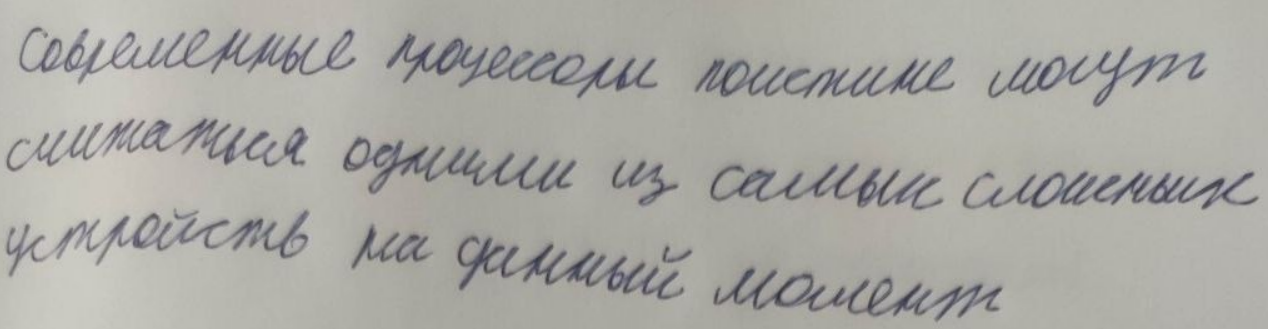 Современные процессоры поистине могут
считаться одними из самых сложных
устройств на данный момент